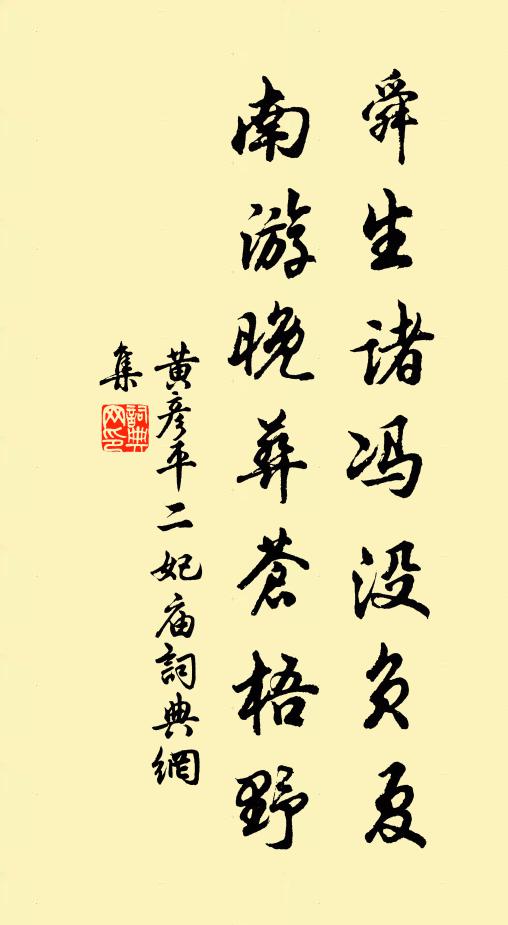 舜生诸冯没负夏
南游晚葬苍梧野
黄彦平二妃庙詞典網
集
詞典网印